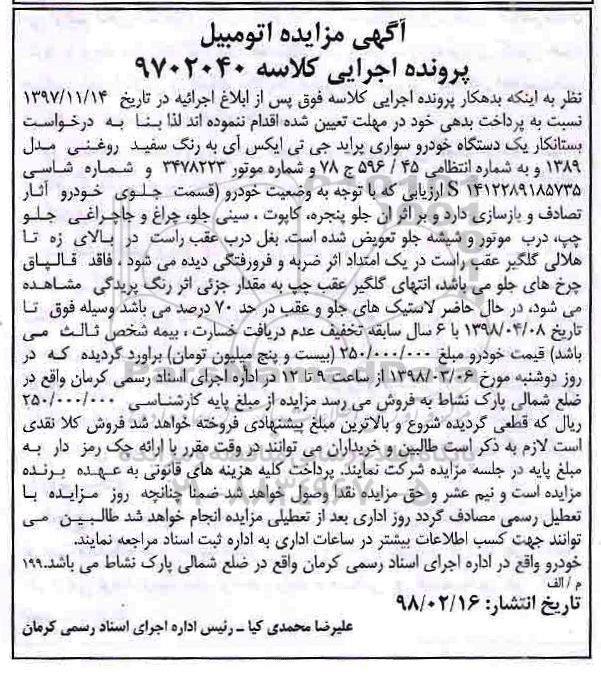 آگهی مزایده اتومبیل
پرونده اجرایی کلاسه ۹۷۰۲۰۴۰
نظر به اینکه بدهکار پرونده اجرایی کلاسه فوق پس از ابلاغ اجرائیه در تاریخ ۱۳۹۷/۱۱/۱۴
نسبت به پرداخت بدهی خود در مهلت تعیین شده اقدام ننموده اند لذا بنا به درخواست
بستانکار یک دستگاه خودرو سواری پراید جی تی ایکس آی به رنگ سفید روغنی مدل
۱۳۸۹ و به شماره انتظامی ۴۵ / ۵۹۶ ج ۷۸ و شماره موتور ۳۴۷۸۲۲۳ و شماره شاسی
S ۱۴۱۲۲۸۹۱۸۵۷۳۵ ارزیابی که با توجه به وضعیت خودرو (قسمت جلوی خودرو آثار
تصادف و بازسازی دارد و بر اثر ان جلو پنجره، کاپوت ، سینی جلو، چراغ و جاچراغی جلو
چپ، درب موتور و شیشه جلو تعویض شده است. بغل درب عقب راست در بالای زه تا
هلالی گلگیر عقب راست در یک امتداد اثر ضربه و فرورفتگی دیده می شود ، فاقد قالپاق
چرخ های جلو می باشد، انتهای گلگیر عقب چپ به مقدار جزئی اثر رنگ پریدگی مشاهده
می شود، در حال حاضر لاستیک های جلو و عقب در حد ۷۰ درصد می باشد وسیله فوق تا
تاریخ ۱۳۹۸/۰۴/۰۸ با ۶ سال سابقه تخفیف عدم دریافت خسارت ، بیمه شخص ثالث می
باشد) قیمت خودرو مبلغ ۲۵۰/۰۰۰/۰۰۰ (بیست و پنج میلیون تومان) براورد گردیده که در
روز دوشنبه مورخ ۱۳۹۸/۰۳/۰۶ از ساعت ۹ تا ۱۲ در اداره اجرای اسناد رسمی کرمان واقع در
ضلع شمالی پارک نشاط به فروش می رسد مزایده از مبلغ پایه کارشناسی ۲۵۰/۰۰۰/۰۰۰
ریال که قطعی گردیده شروع و بالاترین مبلغ پیشنهادی فروخته خواهد شد فروش کلا نقدی
است لازم به ذکر است طالبین و خریداران می توانند در وقت مقرر با ارائه چک رمز دار به
مبلغ پایه در جلسه مزایده شرکت نمایند. پرداخت کلیه هزینه های قانونی به عهده برنده
مزایده است و نیم عشر و حق مزایده نقدا وصول خواهد شد ضمنا چنانچه روز مزایده با
تعطیل رسمی مصادف گردد روز اداری بعد از تعطیلی مزایده انجام خواهد شد طالبین می
توانند جهت کسب اطلاعات بیشتر در ساعات اداری به اداره ثبت اسناد مراجعه نمایند.
خودرو واقع در اداره اجرای اسناد رسمی کرمان واقع در ضلع شمالی پارک نشاط می باشد.۱۹۹
م / الف
تاریخ انتشار: ۹۸/۰۲/۱۶
علیرضا محمدی کیا ـ رئیس اداره اجرای اسناد رسمی کرمان